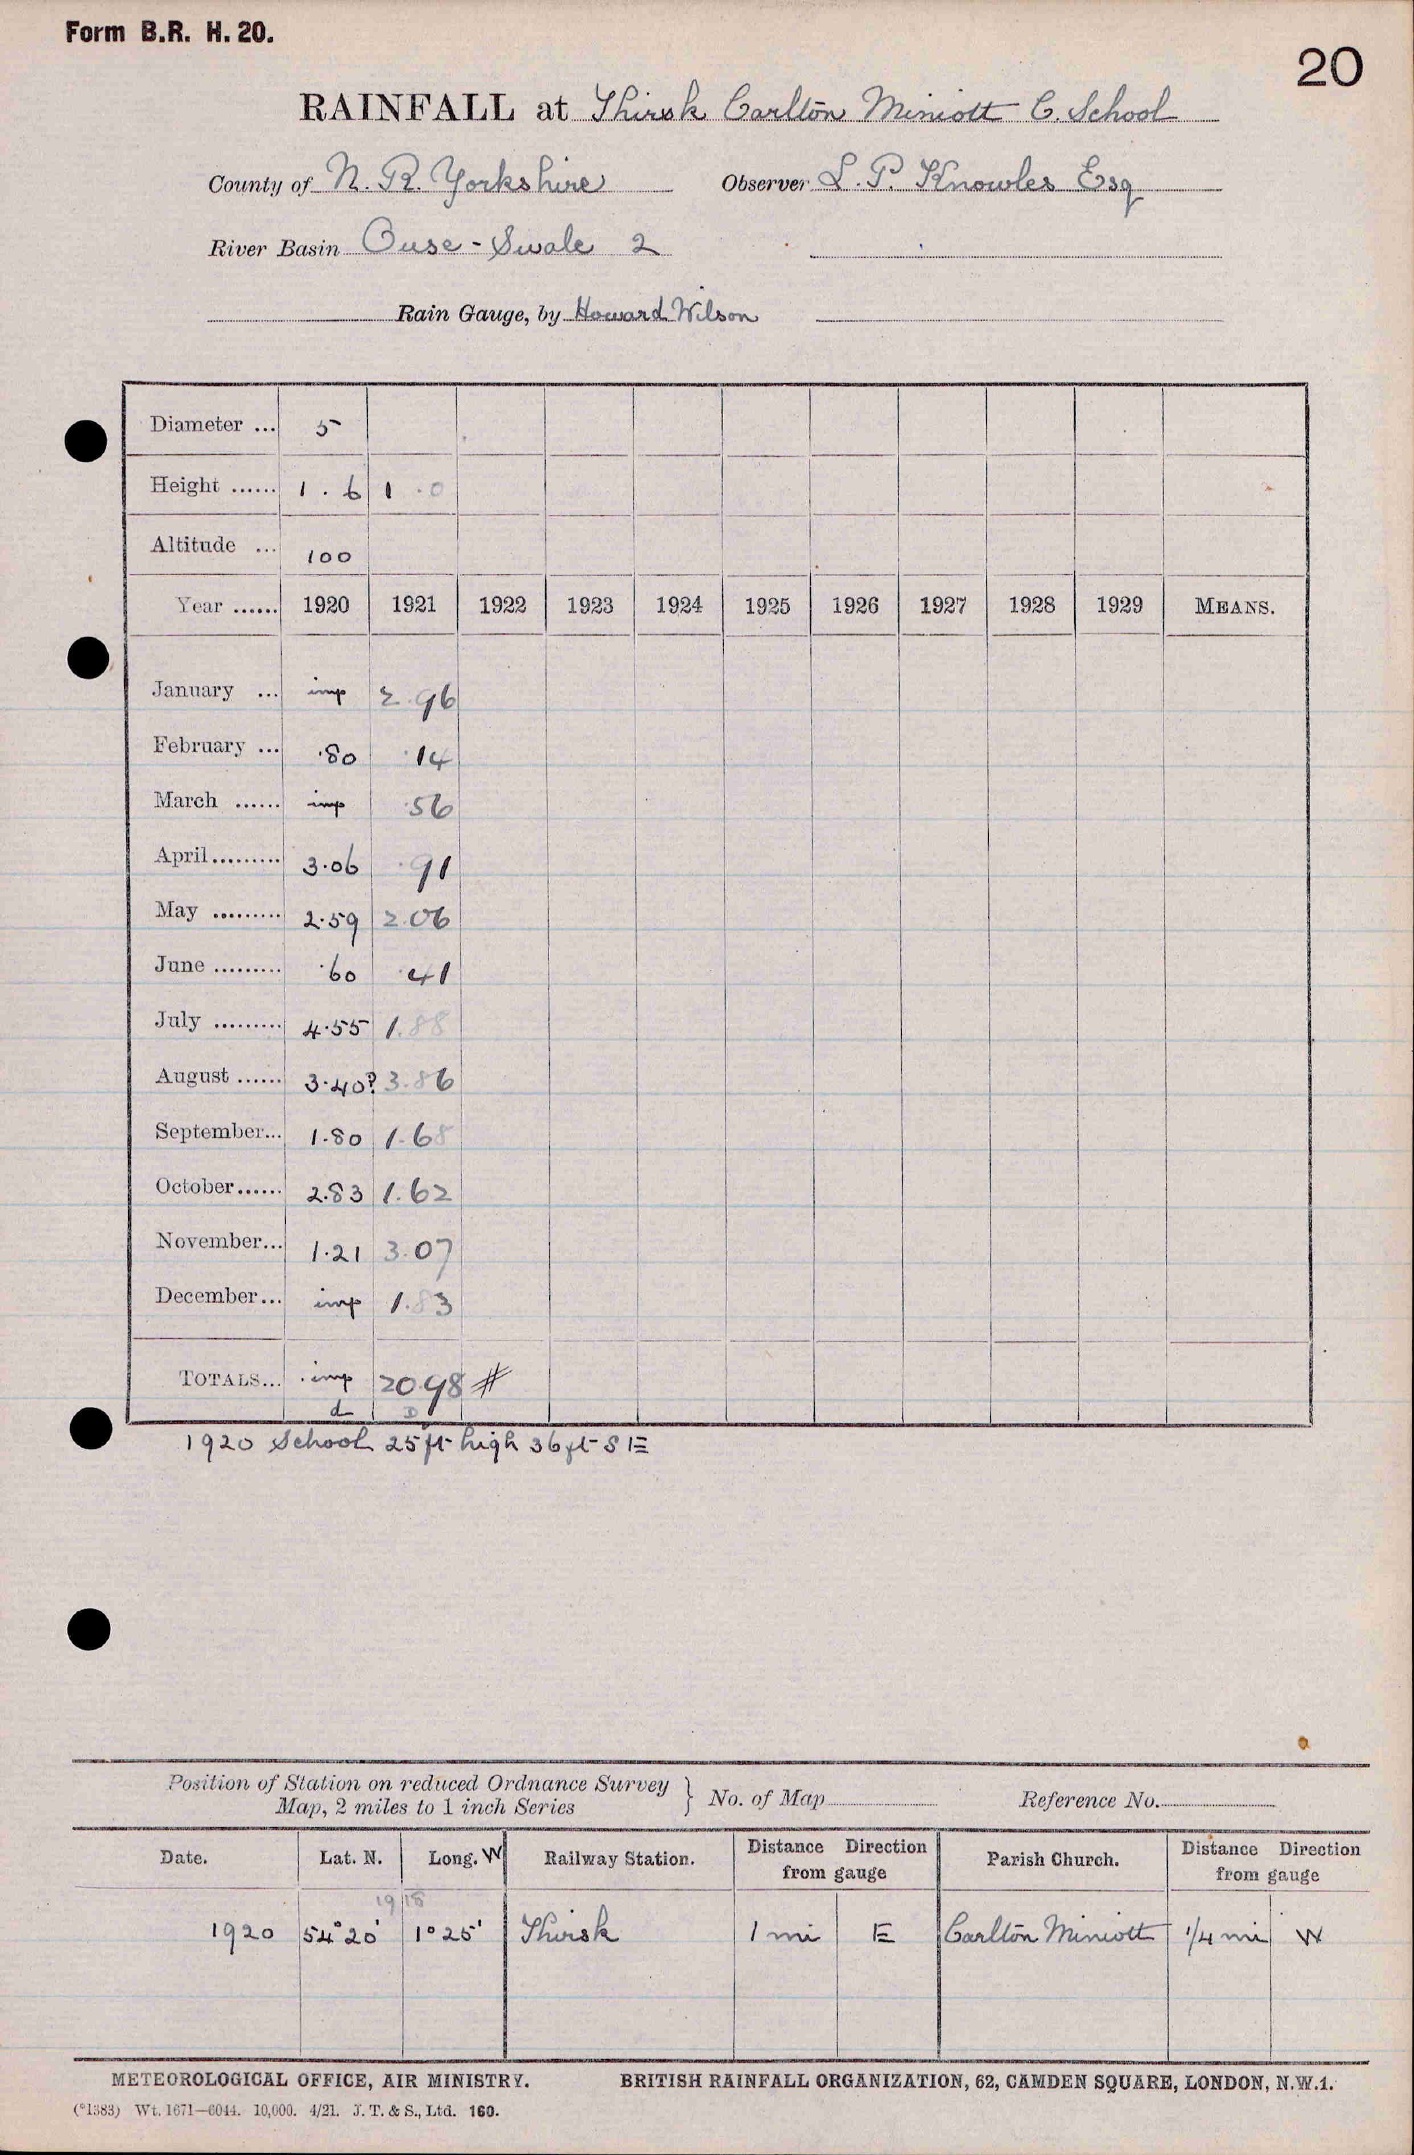 Form B.R. H. 20.
20
RAINFALL at Thirsk Carlton Miniott C. School
County of N. R. Yorkshire Observer L. P. Knowles Esq
River Basin Ouse - Swale 2
Rain Gauge, by Howard Wilson
Diameter ... 5
Height ...... 1 . 6 1 . 0
Altitude ... 100
Year ...... 1920 1921 1922 1923 1924 1925 1926 1927 1928 1929 MEANS.
January ... imp 2.96
February ... .80 .14
March ...... imp .56
April......... 3.06 .91
May ......... 2.59 2.06
June ......... .60 .41
July ......... 4.55 1.88
August ...... 3.40? 3.86
September... 1.80 1.68
October...... 2.83 1.62
November... 1.21 3.07
December... imp 1.83
TOTALS... imp 20.98 #
d D
1920 School 25 ft high 36 ft S E
Position of Station on reduced Ordnance Survey
Map, 2 miles to 1 inch Series } No. of Map Reference No.
Date. Lat. N. Long. W Railway Station. Distance Direction from gauge Parish Church. Distance Direction from gauge
19 18
1920 54° 20' 1° 25' Thirsk 1 mi E Carlton Miniott 1/4 mi W
METEOROLOGICAL OFFICE, AIR MINISTRY. BRITISH RAINFALL ORGANIZATION, 62, CAMDEN SQUARE, LONDON, N.W.1.
(*1383) Wt. 1671—6044. 10,000. 4/21. J. T. & S., Ltd. 160.